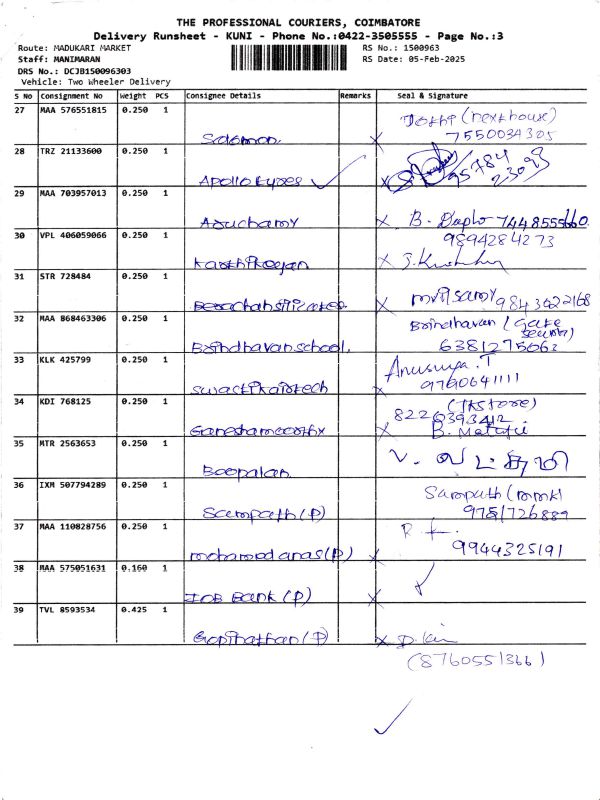 THE PROFESSIONAL COURIERS, COIMBATORE
Delivery Runsheet - KUNI - Phone No.:0422-3505555 - Page No.:3
Route: MADUKARI MARKET
RS No.: 1500963
Staff: MANIMARAN
RS Date: 05-Feb-2025
DRS No.: DCJB150096303
Vehicle: Two Wheeler Delivery
S No Consignment No Weight PCS Consignee Details Remarks Seal & Signature
27 MAA 576551815 0.250 1 Jothi (next house)
Solomon. x 7550034305
28 TRZ 21133600 0.250 1 95784
Apollo tyres ✓ x 23093
29 MAA 703957013 0.250 1
Aruchamy x B. 7448555660
30 VPL 406059066 0.250 1 9894284273
Karthikeyan x
31 STR 728484 0.250 1
x 9843422168
32 MAA 868463306 0.250 1 Brindhavan (Gate
Brindhavan school. 6381275662
33 KLK 425799 0.250 1 Anusuya.T
x 9790641111
34 KDI 768125 0.250 1 (TKStore)
8220393412
Ganeshamoorthy x B.
35 MTR 2563653 0.250 1
Boopalan
36 IXM 507794289 0.250 1 Sampath (mmk)
Sampath (P) 9751726889
37 MAA 110828756 0.250 1 R
mohamed anas (P) x 9944325191
38 MAA 575051631 0.160 1 ✓
IOB Bank (P) x
39 TVL 8593534 0.425 1
Gopinathan (P) x
(8760551366)
✓